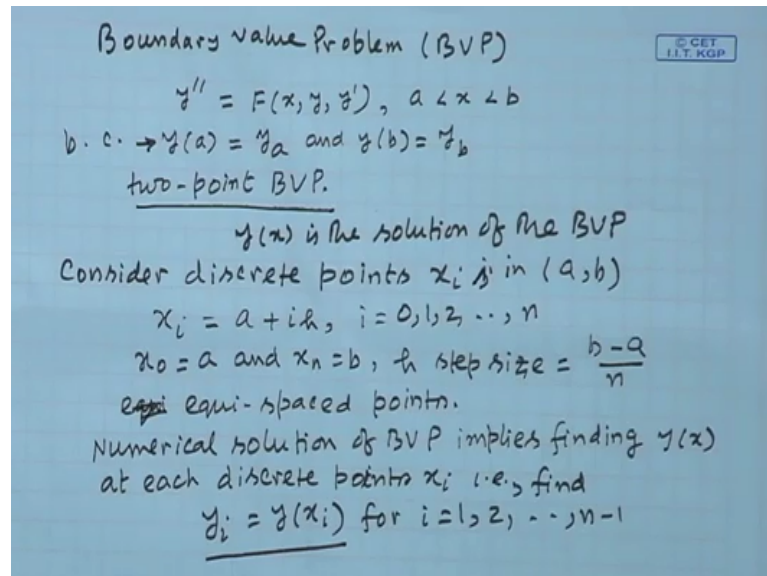 Boundary Value Problem (BVP)
© CET
I.I.T. KGP
y'' = F(x, y, y'), a < x < b
b. c. → y(a) = y_a and y(b) = y_b
two-point BVP.
y(x) is the solution of the BVP
Consider discrete points x_i's in (a,b)
x_i = a + ih, i = 0, 1, 2, .., n
x_0 = a and x_n = b, h step size = \frac{b-a}{n}
equi-spaced points.
Numerical solution of BVP implies finding y(x)
at each discrete points x_i i.e., find
y_i = y(x_i) for i = 1, 2, .., n-1